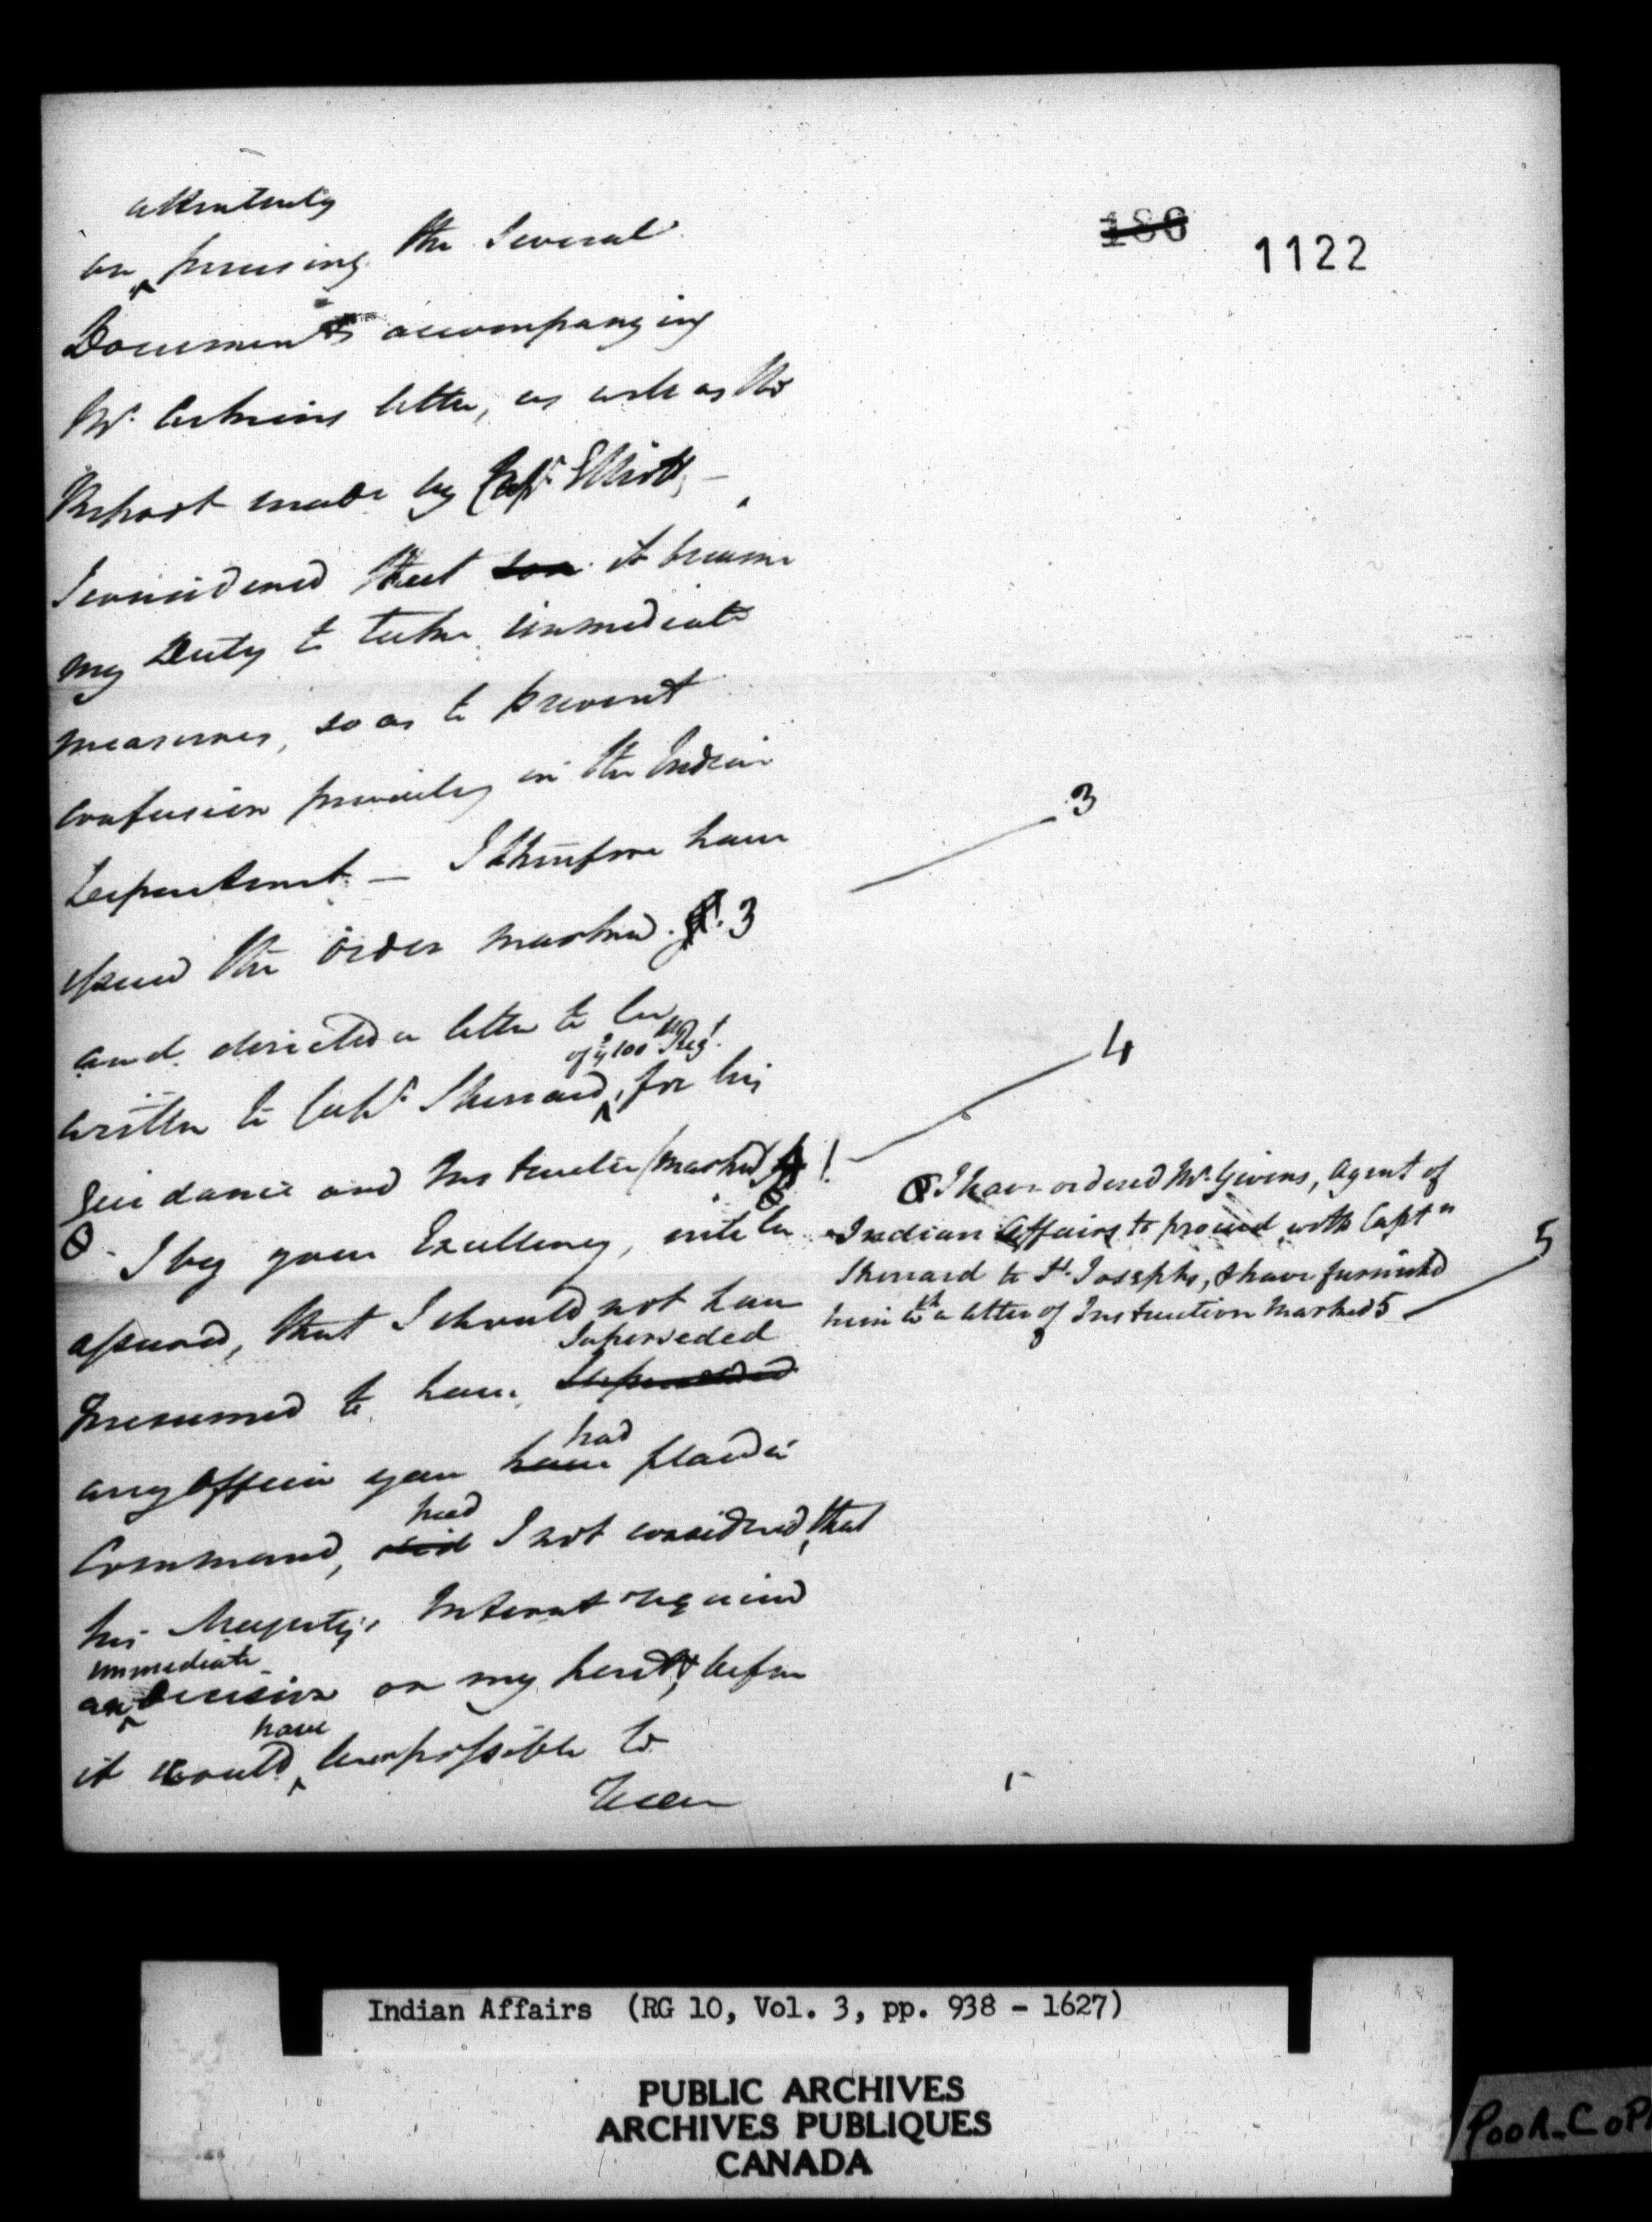 186
1122
attentively
on perusing the Several
Documents accompanying
Mr. Askins letter, as well as the
Report made by Capt. Elliott, –
I considered that it became
my Duty to take immediate
measures, so as to prevent
confusion prevailing in the Indian
Department – I therefore have
issued the order marked 3
3
and directed a letter to be
of ye 100th Regt.
written to Capt. Sherrard, for his
4
Guidance and Instruction (marked 4)
I beg your Excellency, will be
assured, that I should not have
Superseded
presumed to have Superseded
had
any Officer you have placed in
had
Command, did I not considered, that
his Majesty's Interest required
immediate
an Decision on my part, before
have
it would been possible to
I have ordered Mr. Givens, Agent of
Indian Affairs to proceed with Captn
Sherrard to St. Josephs, & have furnished
him wth a letter of Instruction marked 5
5
Indian Affairs (RG 10, Vol. 3, pp. 938 - 1627)
PUBLIC ARCHIVES
ARCHIVES PUBLIQUES
CANADA
POOR COP